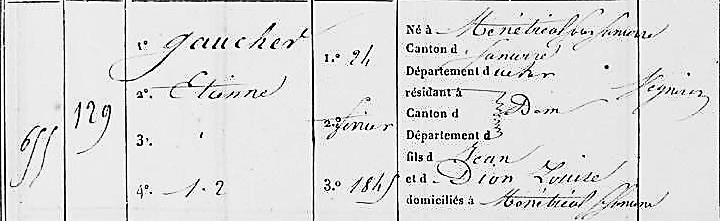 655
129
1º gaucher
2º Etienne
3º "
4º 1. 2
1º 24
2º février
3º 1845
Né à Ménétréol sous Sancerre
Canton d Sancerre
Département du cher
résidant à
Canton d Dom
Département d
fils d Jean
et d Dion Louise
domiciliés à Ménétréol s/ Sancerre